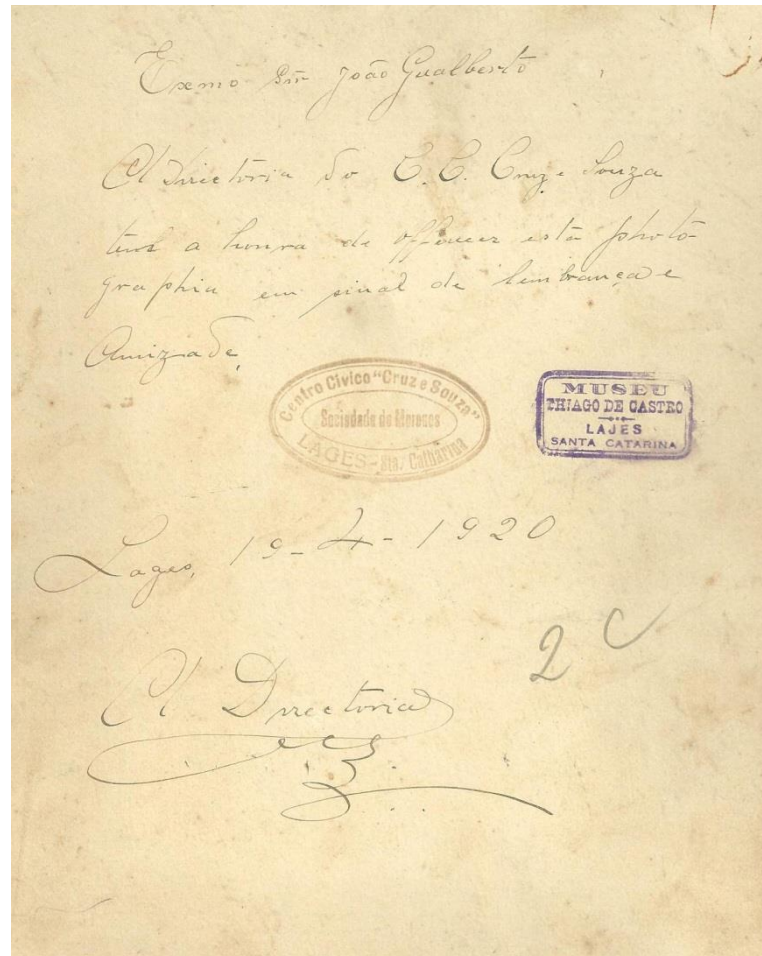 Exmo Snr João Gualberto
A Directoria do C. C. Cruz e Souza
tem a honra de offerecer esta photo-
graphia em sinal de lembrança e
Amizade,
Centro Civico "Cruz e Souza"
Sociedade de Morenos
LAGES - Sta. Catharina
MUSEU
THIAGO DE CASTRO
LAJES
SANTA CATARINA
Lages, 19-4-1920
2 C
A Directoria